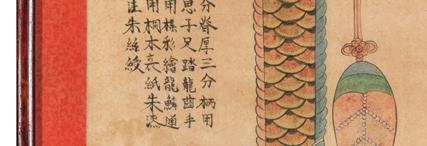 分脊厚三分柄用
息子又踏龍齒手
用樸彩繪龍鱗通
用桐木裹紙朱漆
注朱絲綬